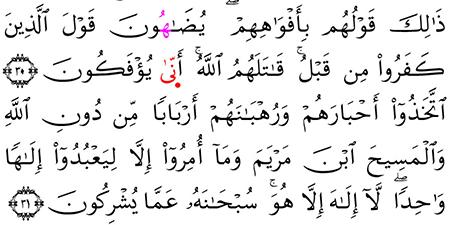 ذَٰلِكَ قَوْلُهُم بِأَفْوَاهِهِمْ ۖ يُضَـٰهُونَ قَوْلَ ٱلَّذِينَ
كَفَرُوا۟ مِن قَبْلُ ۚ قَـٰتَلَهُمُ ٱللَّهُ ۚ أَنَّىٰ يُؤْفَكُونَ ٣٠
ٱتَّخَذُوٓا۟ أَحْبَارَهُمْ وَرُهْبَـٰنَهُمْ أَرْبَابًا مِّن دُونِ ٱللَّهِ
وَٱلْمَسِيحَ ٱبْنَ مَرْيَمَ وَمَآ أُمِرُوٓا۟ إِلَّا لِيَعْبُدُوٓا۟ إِلَـٰهًا
وَٰحِدًا ۖ لَّآ إِلَـٰهَ إِلَّا هُوَ ۚ سُبْحَـٰنَهُۥ عَمَّا يُشْرِكُونَ ٣١